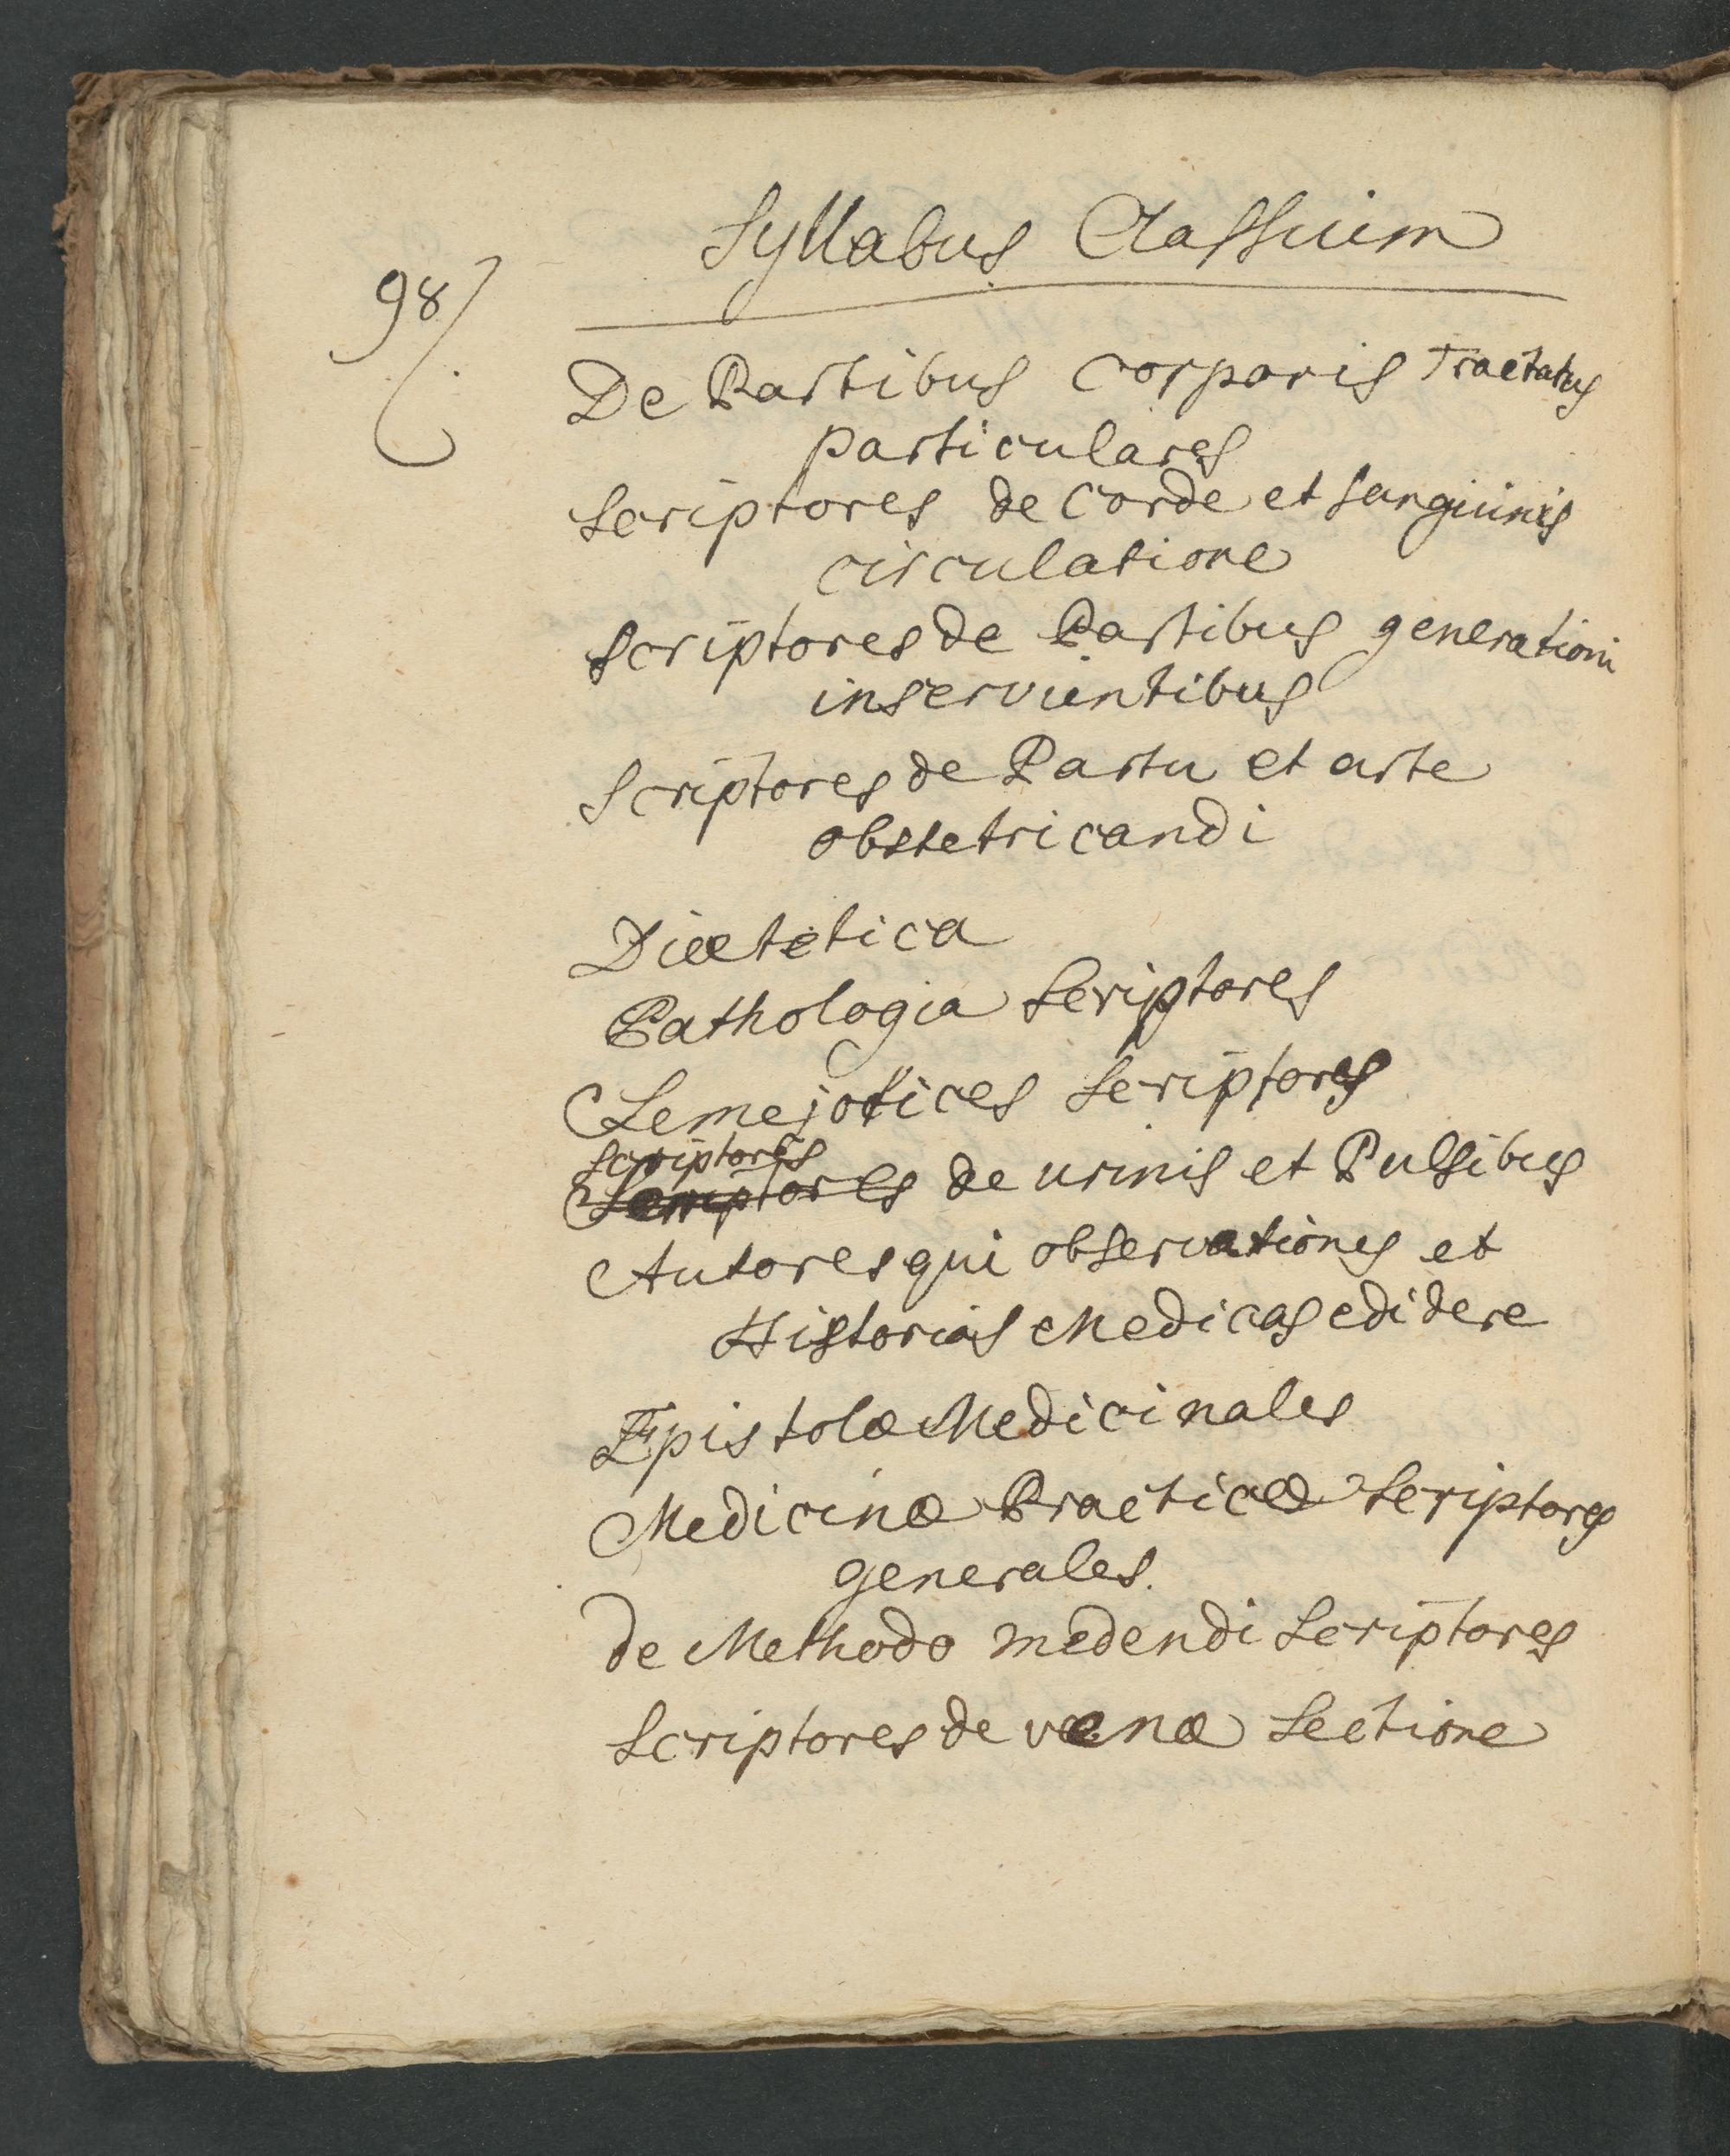 Syllabus Classium
98
De Partibus Corporis Tractatus
particulares
Scriptores de Corde et Sanguinis
circulatione
Scriptores de Partibus generationi
inservientibus
Scriptores de Partu et arte
obstetricandi
Diætetica
Pathologia Scriptores
Semejotices Scriptores
Scriptores
Scriptores de urinis et Pulsibus
Autores qui observationes et
Historias Medicas edidere
Epistolæ Medicinales
Medicinæ Practicæ Scriptores
generales.
de Methodo medendi Scriptores
Scriptores de venæ Sectione